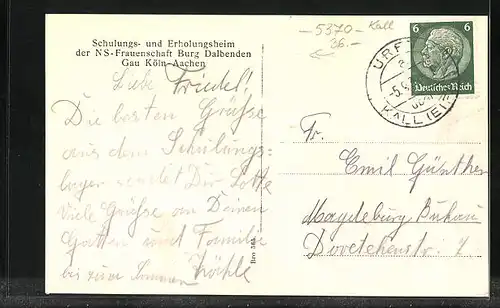 Schulungs- und Erholungsheim
der NS-Frauenschaft Burg Dalbenden
Gau Köln-Aachen
5370- Kall
36.-
6 6
Deutsches Reich
URFT
KALL (EI
Liebe Friedel!
Die besten Grüße
aus dem Schulungs-
lager sendet Dir Lotte
Viele Grüße an Deinen
Gatten und Familie
bis zum
Fr.
Emil Günther
Magdeburg Bukau
Dorotehenstr. 7